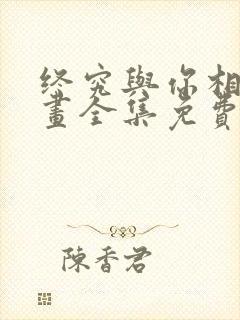 终究與你相
畫全集免費
陳香君